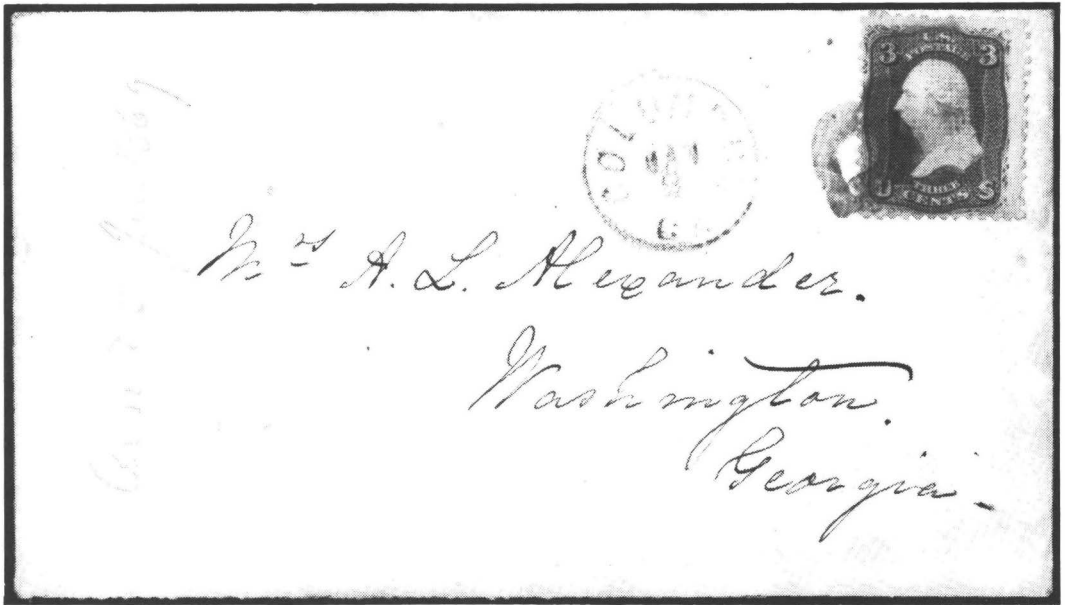 U.S.
POSTAGE
3 3
THREE
CENTS
COLUMBUS
GA
Mrs A. L. Alexander.
Washington.
Georgia.